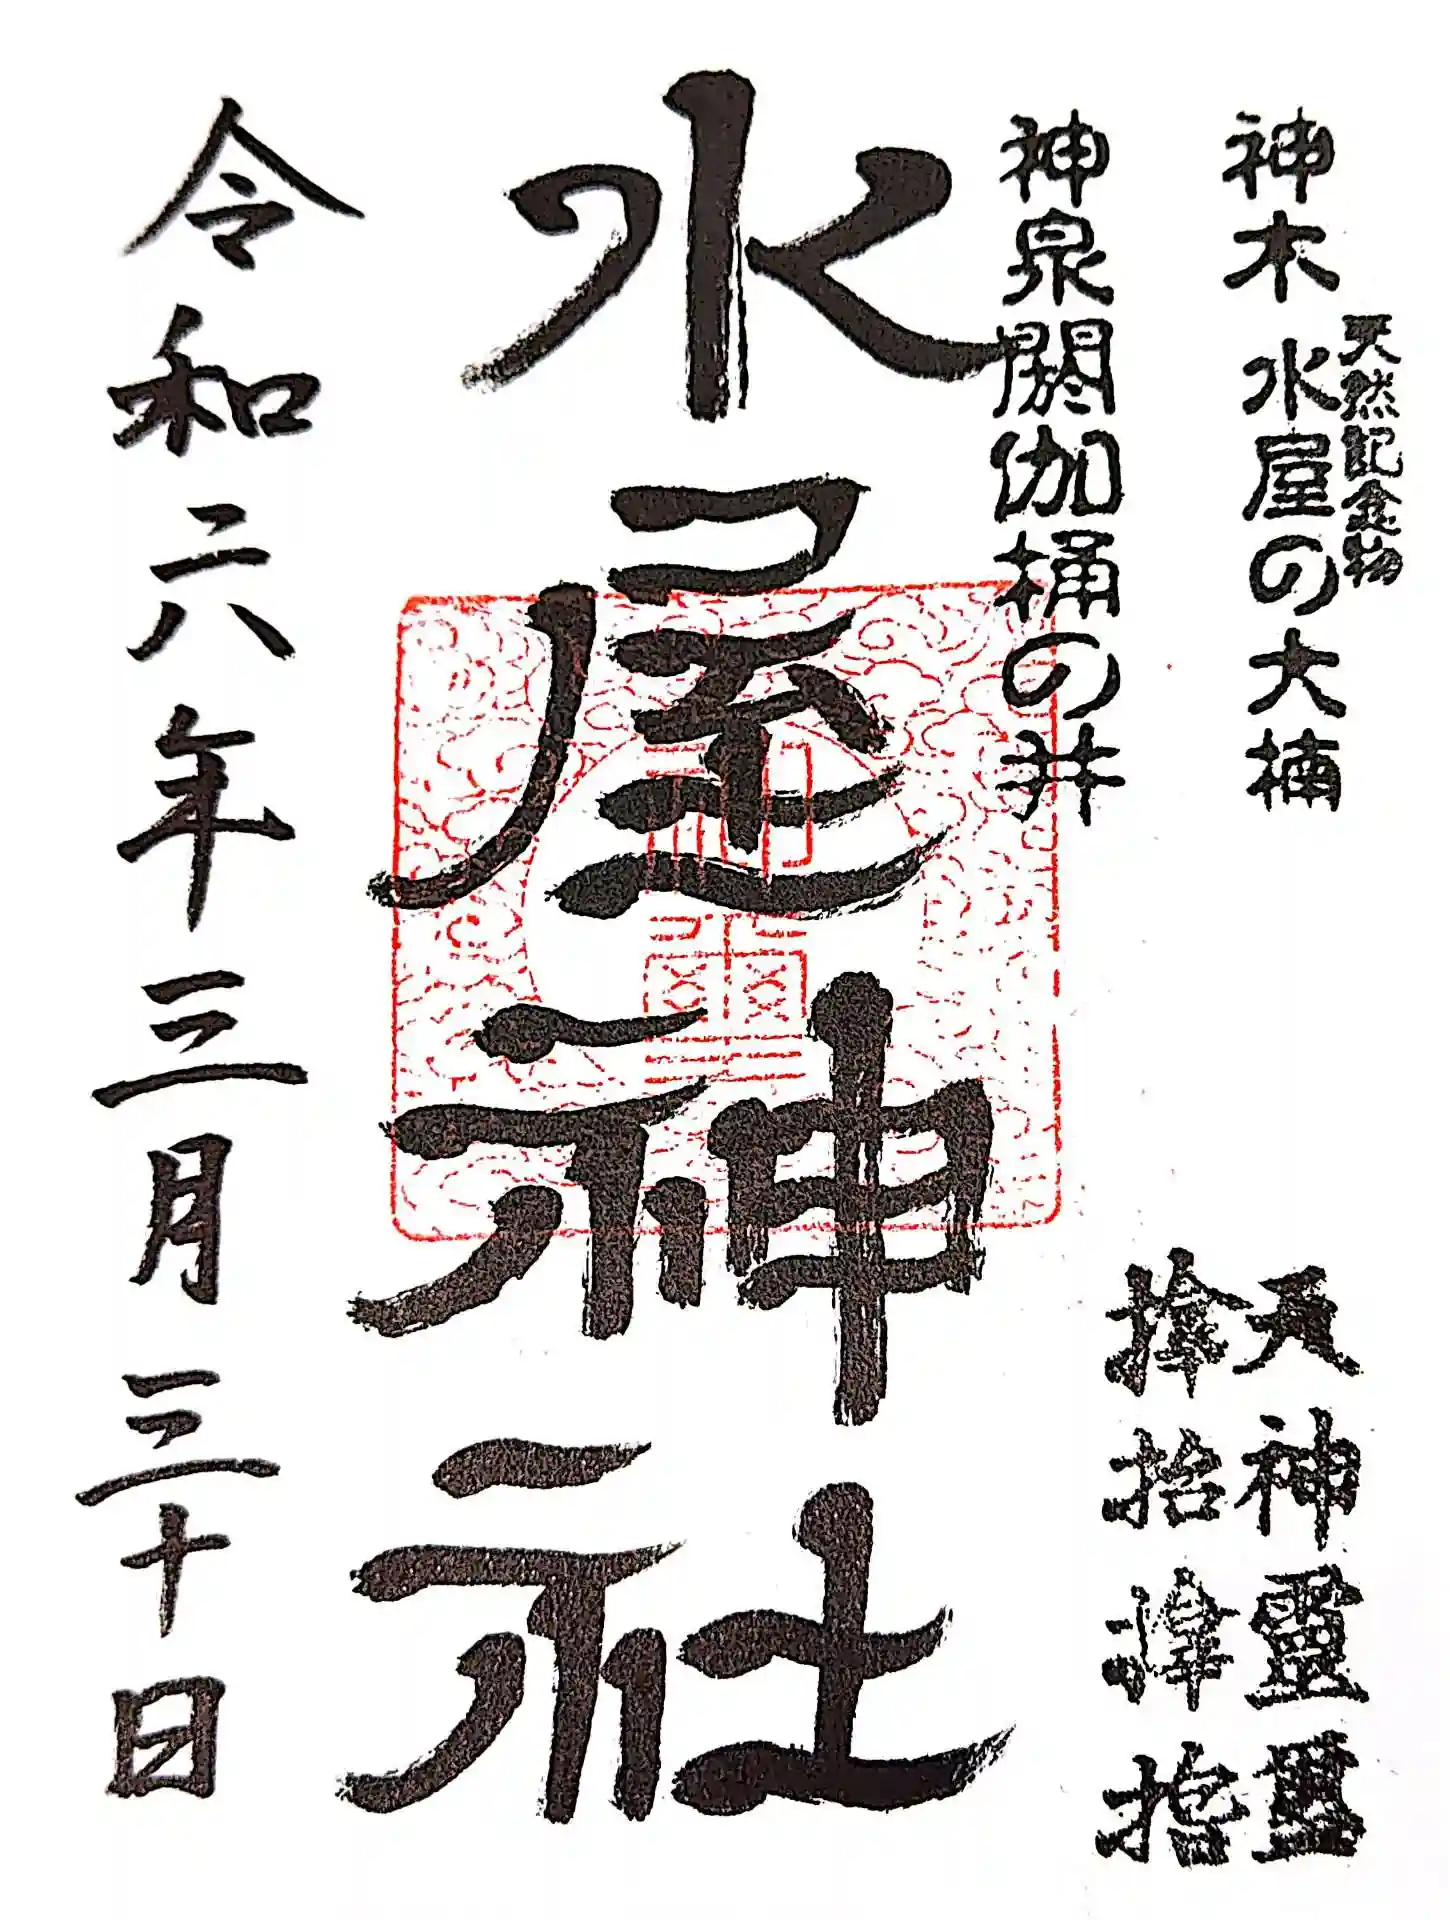 神木 水屋の大楠
天然記念物
神泉閼伽桶の井
天神
水屋神社
令和六年三月三十日